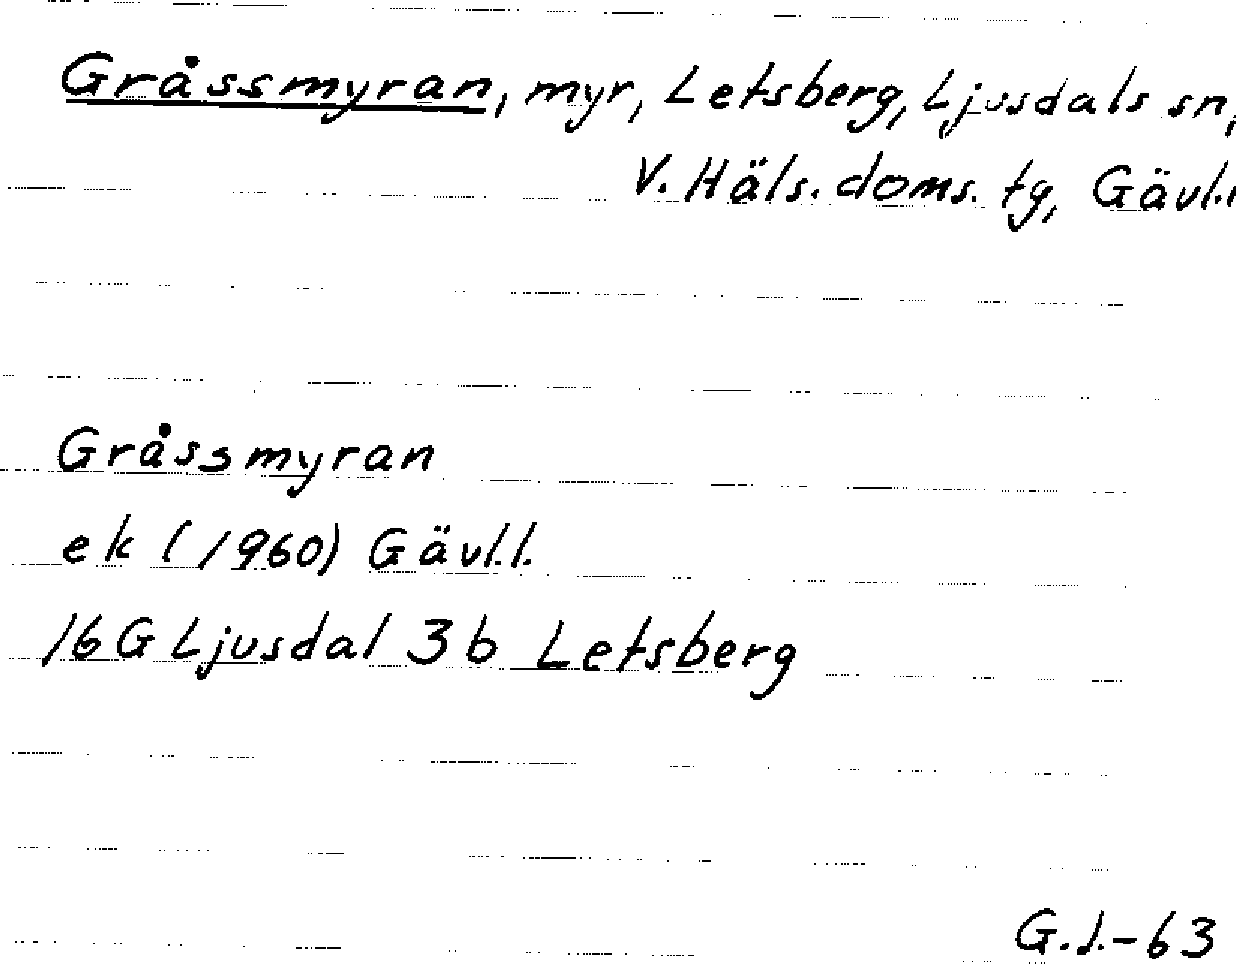 Gråssmyran, myr, Letsberg, Ljusdals sn,
V. Häls. doms. tg, Gävl.l
Gråssmyran
ek (1960) Gävl.l.
16 G Ljusdal 3 b Letsberg
G.J.-63